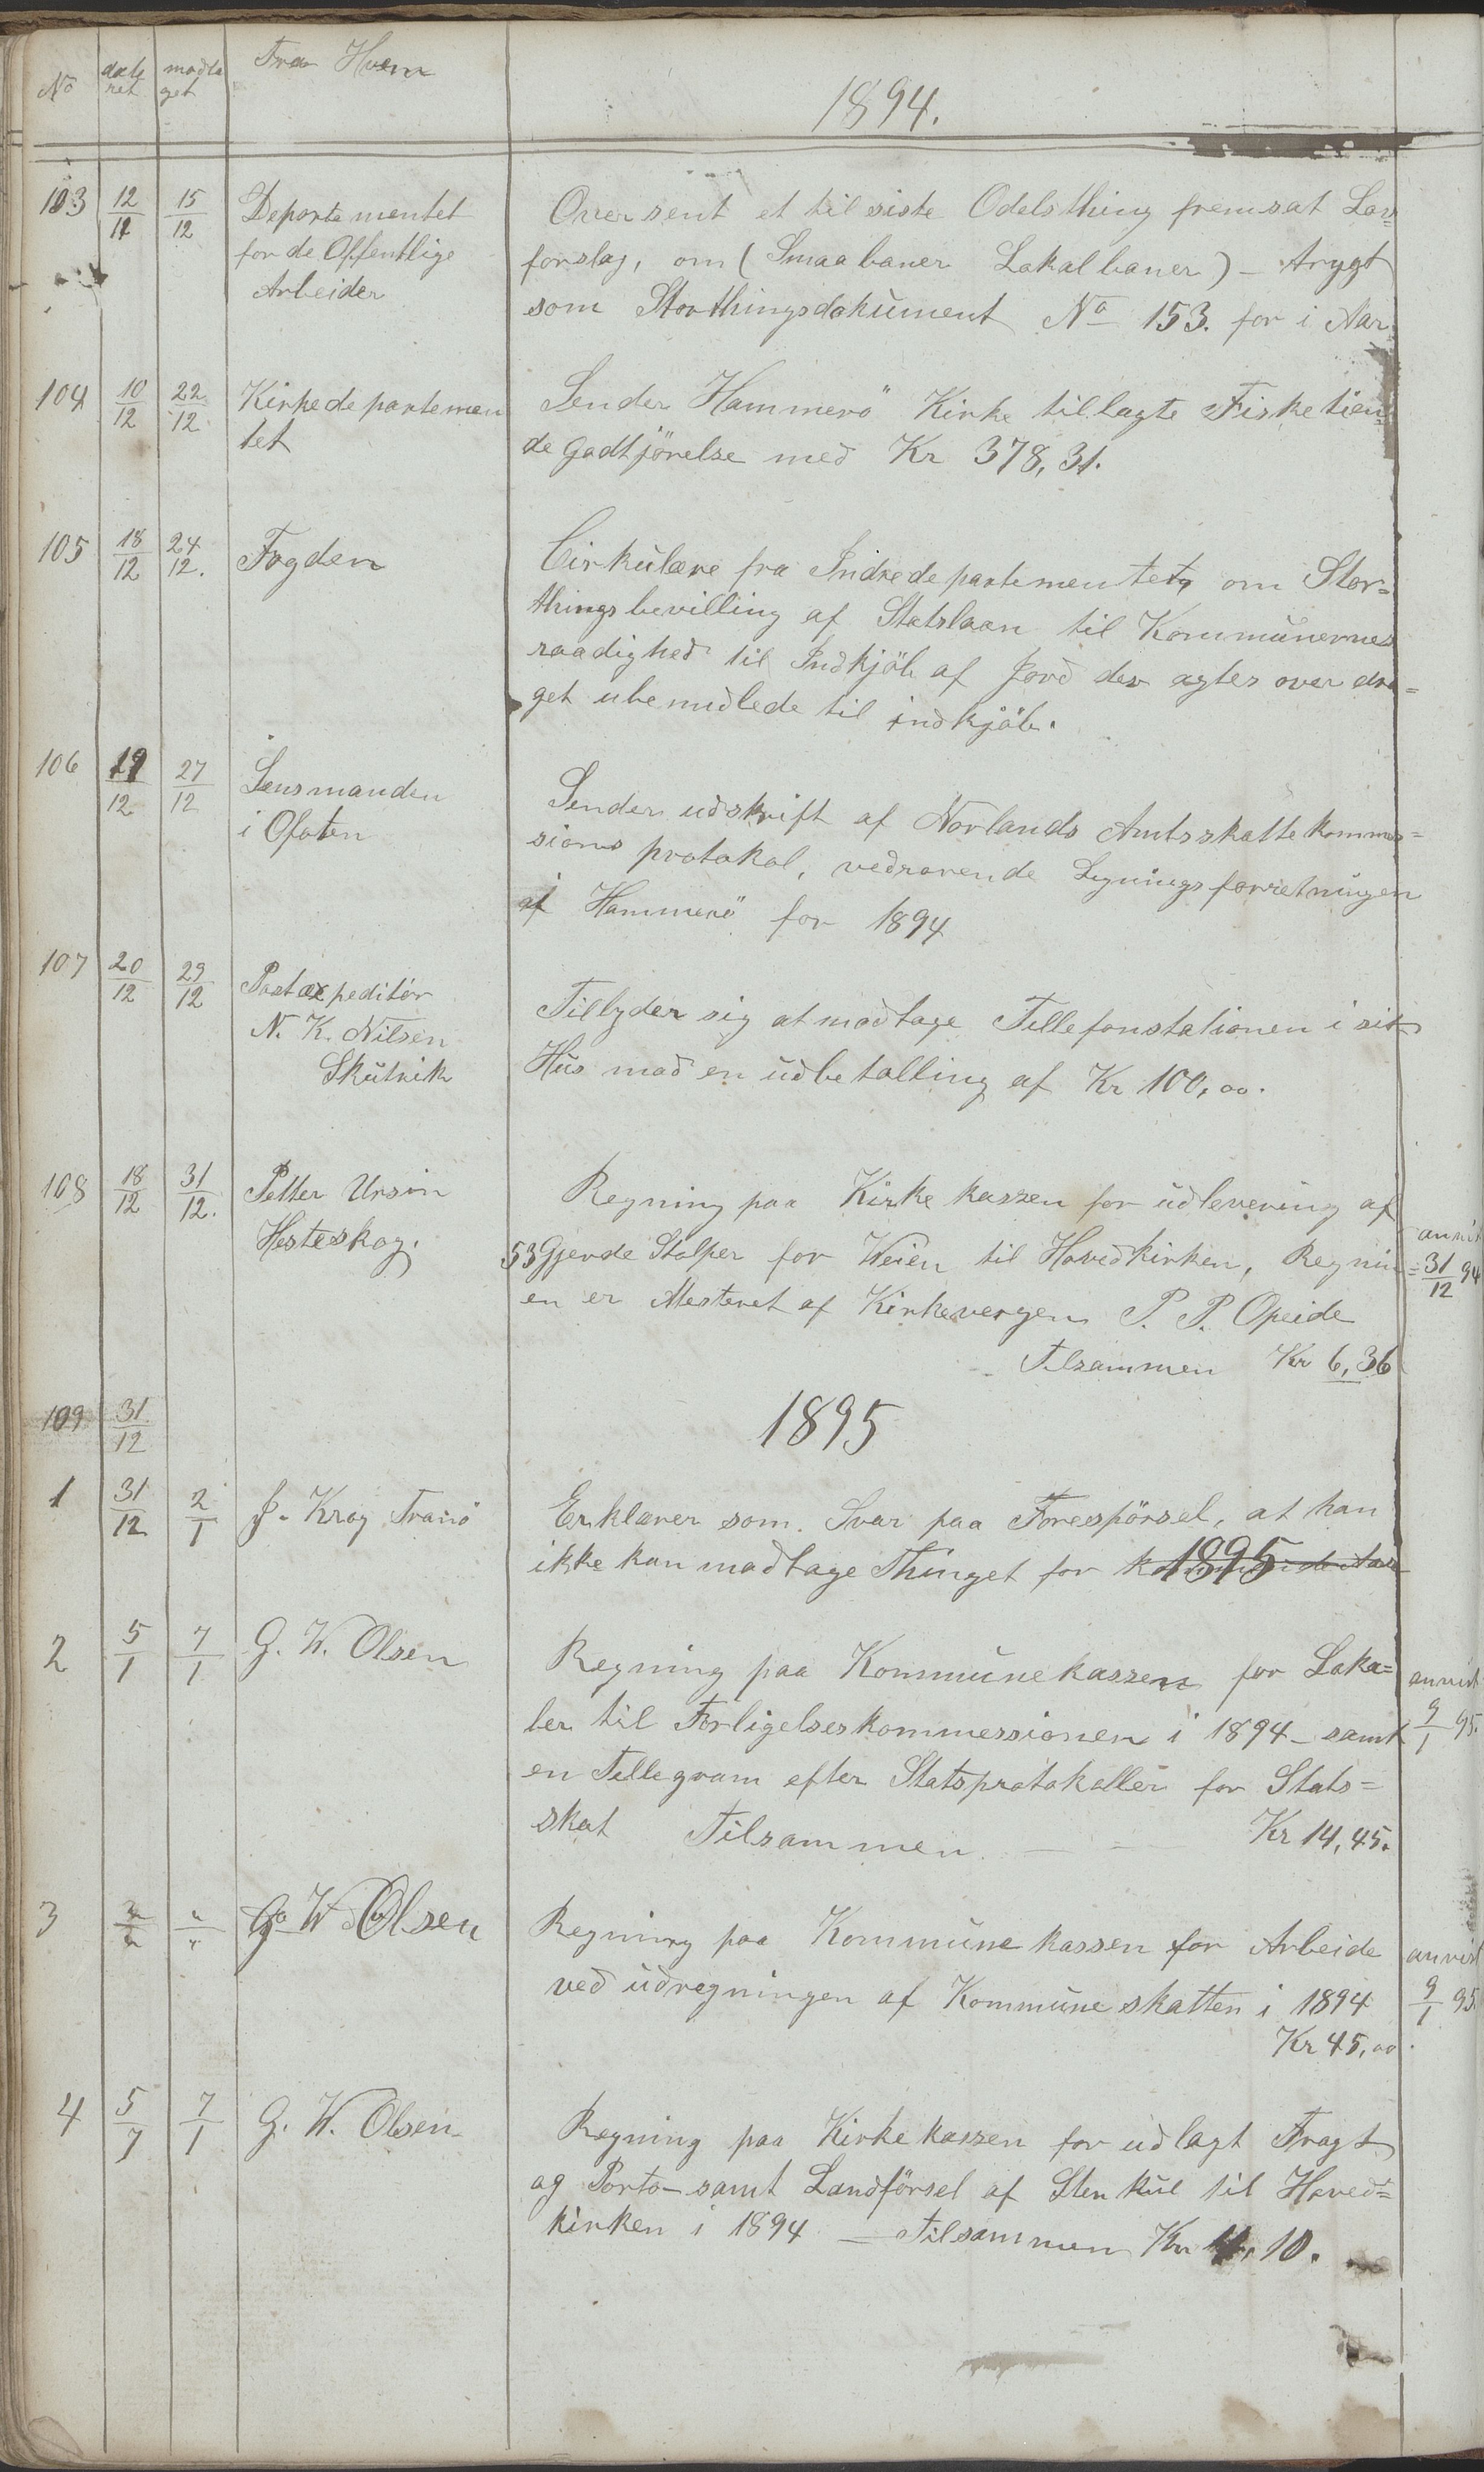 No datert modtaget Fra Hvem
1894.
103 12/12 15/12 Departementet Oversent et til siste Odelsthing fremsat Lov=
for de Offentlige forslag, om (Smaabaner Lokalbaner) - trygt
Arbeider som Storthingsdokument No 153. for i Aar.
104 10/12 22/12 Kirkedepartemen Sender Hammerö Kirke tillagte Fisketien=
tet de Godtjörelse med Kr 378,31.
105 18/12 24/12. Fogden Cirkulære fra Indredepartementet, om Stor=
thingsbevilling af Statslaan til Kommunernes
raadighed til Indkjöb af Jord der agtes overdra=
get ubemidlede til indkjöb.
106 19/12 27/12 Lensmanden Sender udskrift af Norlands Amtsskattekommis=
i Ofoten sions protokol, vedrørende Ligningsforretningen
i Hammerö for 1894
107 20/12 29/12 Postexpeditör Tilbyder sig at modtage Tellefonstationen i sit
N. K. Nilsen Hus mod en udbetalling af Kr 100,00.
Skutvik
108 18/12 31/12. Petter Ursin Regning paa Kirkekassen for udlevering af anvist
Hesteskog. 53 Gjerde Stolper for Veien til Hovedkirken, Regnin= 31/12 94
en er Atesteret af Kirkevergen P. P. Opeide
Tilsammen Kr 6,36
109 31/12
1895
1 31/12 2/1 J. Krog Tranö Erklærer som Svar paa Forespörsel, at han
ikke kan modtage Thinget for 1895
2 5/1 7/1 G. W. Olsen Regning paa Kommunekassen for Loka= anvist
ler til Forligelseskommessionen i 1894 - samt 9/1 95.
en Tellegram efter Statsprotokoller for Stats=
skat Tilsammen - - Kr 14,45.
3 "/" "/" G. W. Olsen Regning paa Kommunekassen for Arbeide anvist
ved udregningen af Kommuneskatten i 1894 9/1 95
Kr 45,00.
4 5/7 7/1 G. W. Olsen Regning paa Kirkekassen for udlagt Fragt
og Porto - samt Landförsel af Stenkul til Hoved=
kirken i 1894 - Tilsammen Kr 4,10.